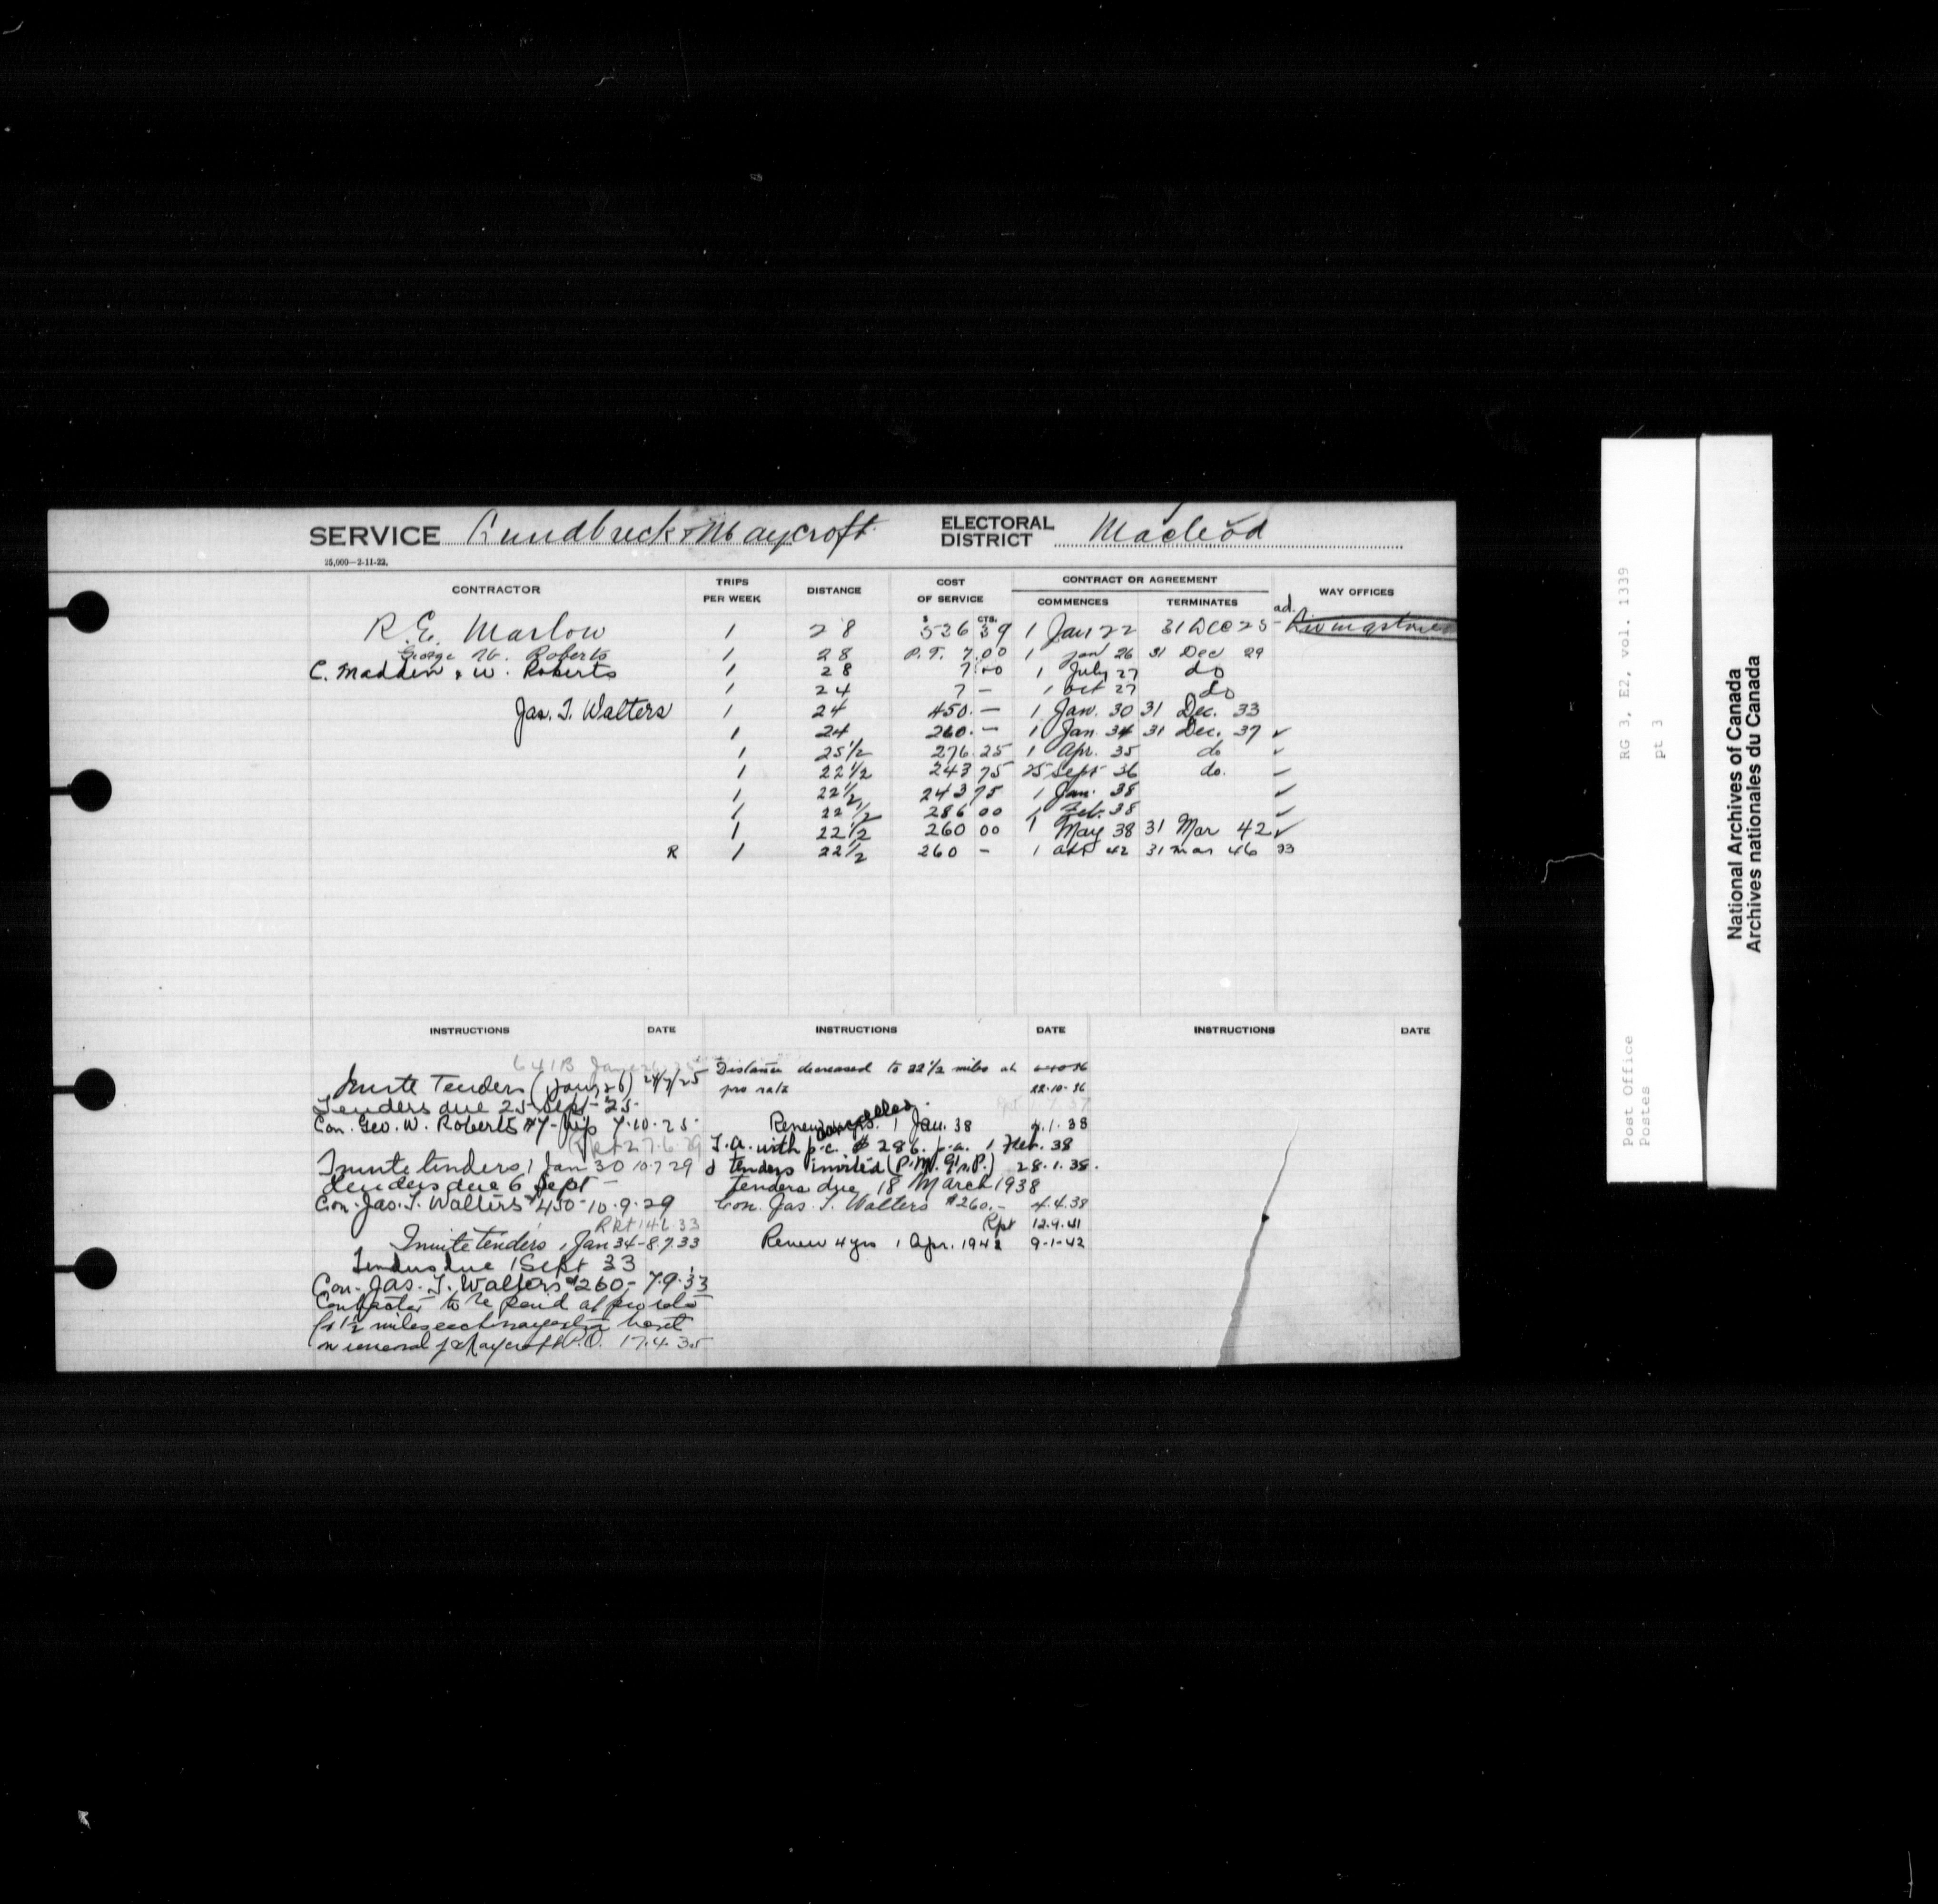 SERVICE Lundbreck & Maycroft ELECTORAL DISTRICT Macleod
25,000—2-11-22.
CONTRACTOR TRIPS PER WEEK DISTANCE COST OF SERVICE CONTRACT OR AGREEMENT COMMENCES TERMINATES WAY OFFICES
$ CTS. ad.
R. E. Marlow 1 28 536 39 1 Jan 22 31 Dec 25 Livingstone
George W. Roberts 1 28 P.T. 7.00 1 Jan 26 31 Dec 29
C. Madden & W. Roberts 1 28 7.00 1 July 27 do
1 24 7 — 1 Oct 27 do
Jas. T. Walters 1 24 450. — 1 Jan. 30 31 Dec. 33
1 24 260. — 1 Jan 34 31 Dec. 37 ✓
1 25 1/2 276.25 1 Apr. 35 do ✓
1 22 1/2 243 75 25 Sept 36 do. ✓
1 22 1/2 243 75 1 Jan. 38 ✓
1 22 1/2 286 00 1 Feb. 38 ✓
1 22 1/2 260 00 1 May 38 31 Mar 42 ✓
R 1 22 1/2 260 — 1 Apr 42 31 Mar 46
INSTRUCTIONS DATE INSTRUCTIONS DATE INSTRUCTIONS DATE
641B
Invite Tenders (1 Jan 26) 24/7/25
Tenders due 25 Sept 25
Con. Geo. W. Roberts $7- trip 7.10.25
Rpt 27.6.29
Invite tenders 1 Jan 30 10.7.29
tenders due 6 Sept —
Con. Jas. T. Walters $450 - 10.9.29
Rpt 14.6.33
Invite tenders 1 Jan 34 - 8.7.33
Tenders due 1 Sept 33
Con. Jas. T. Walters $260 - 7.9.33
Contractor to be paid at pro rata
for 1 1/2 miles each way
on removal of Maycroft P.O. 17.4.35
Distance decreased to 22 1/2 miles at
pro rata 22.10.36
Renew 1 Jan. 38 4.1.38
cancelled.
T.A. with p.c. $286. p.a. 1 Feb. 38
& tenders invited 28.1.38.
Tenders due 18 March 1938
Con. Jas. T. Walters $260.— 4.4.38
Rpt 12.9.41
Renew 4 yrs 1 Apr. 1942 9-1-42
Post Office RG 3, E2, vol. 1339
Postes pt 3
National Archives of Canada
Archives nationales du Canada